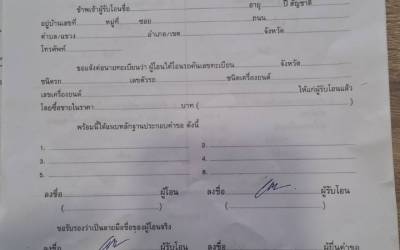 ข้าพเจ้าผู้รับโอนชื่อ อายุ ปี สัญชาติ
อยู่บ้านเลขที่ หมู่ที่ ซอย ถนน
ตำบล/แขวง อำเภอ/เขต จังหวัด
โทรศัพท์
ขอแจ้งต่อนายทะเบียนว่า ผู้โอนได้โอนรถคันเลขทะเบียน จังหวัด
ชนิดรถ เลขตัวรถ ชนิดเครื่องยนต์
เลขเครื่องยนต์ ให้แก่ผู้รับโอนแล้ว
โดยซื้อขายในราคา บาท ( )
พร้อมนี้ได้แนบหลักฐานประกอบคำขอ ดังนี้
1. 2.
3. 4.
5. 6.
ลงชื่อ ผู้โอน ลงชื่อ ผู้รับโอน
( ) ( )
ขอรับรองว่าเป็นลายมือชื่อของผู้โอนจริง
ลงชื่อ ผู้โอน ลงชื่อ ผู้ยื่นคำขอ